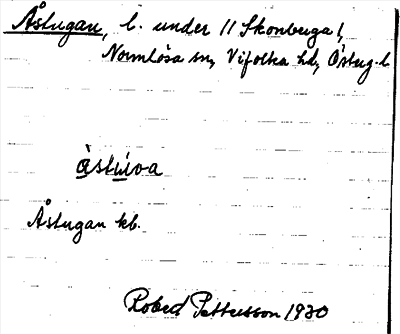 Åstugan, l. under 11 Skonberga l,
Normlösa sn, Vifolka hd, Östug.l
àstùwa
Åstugan kb.
Robert Pettersson 1930